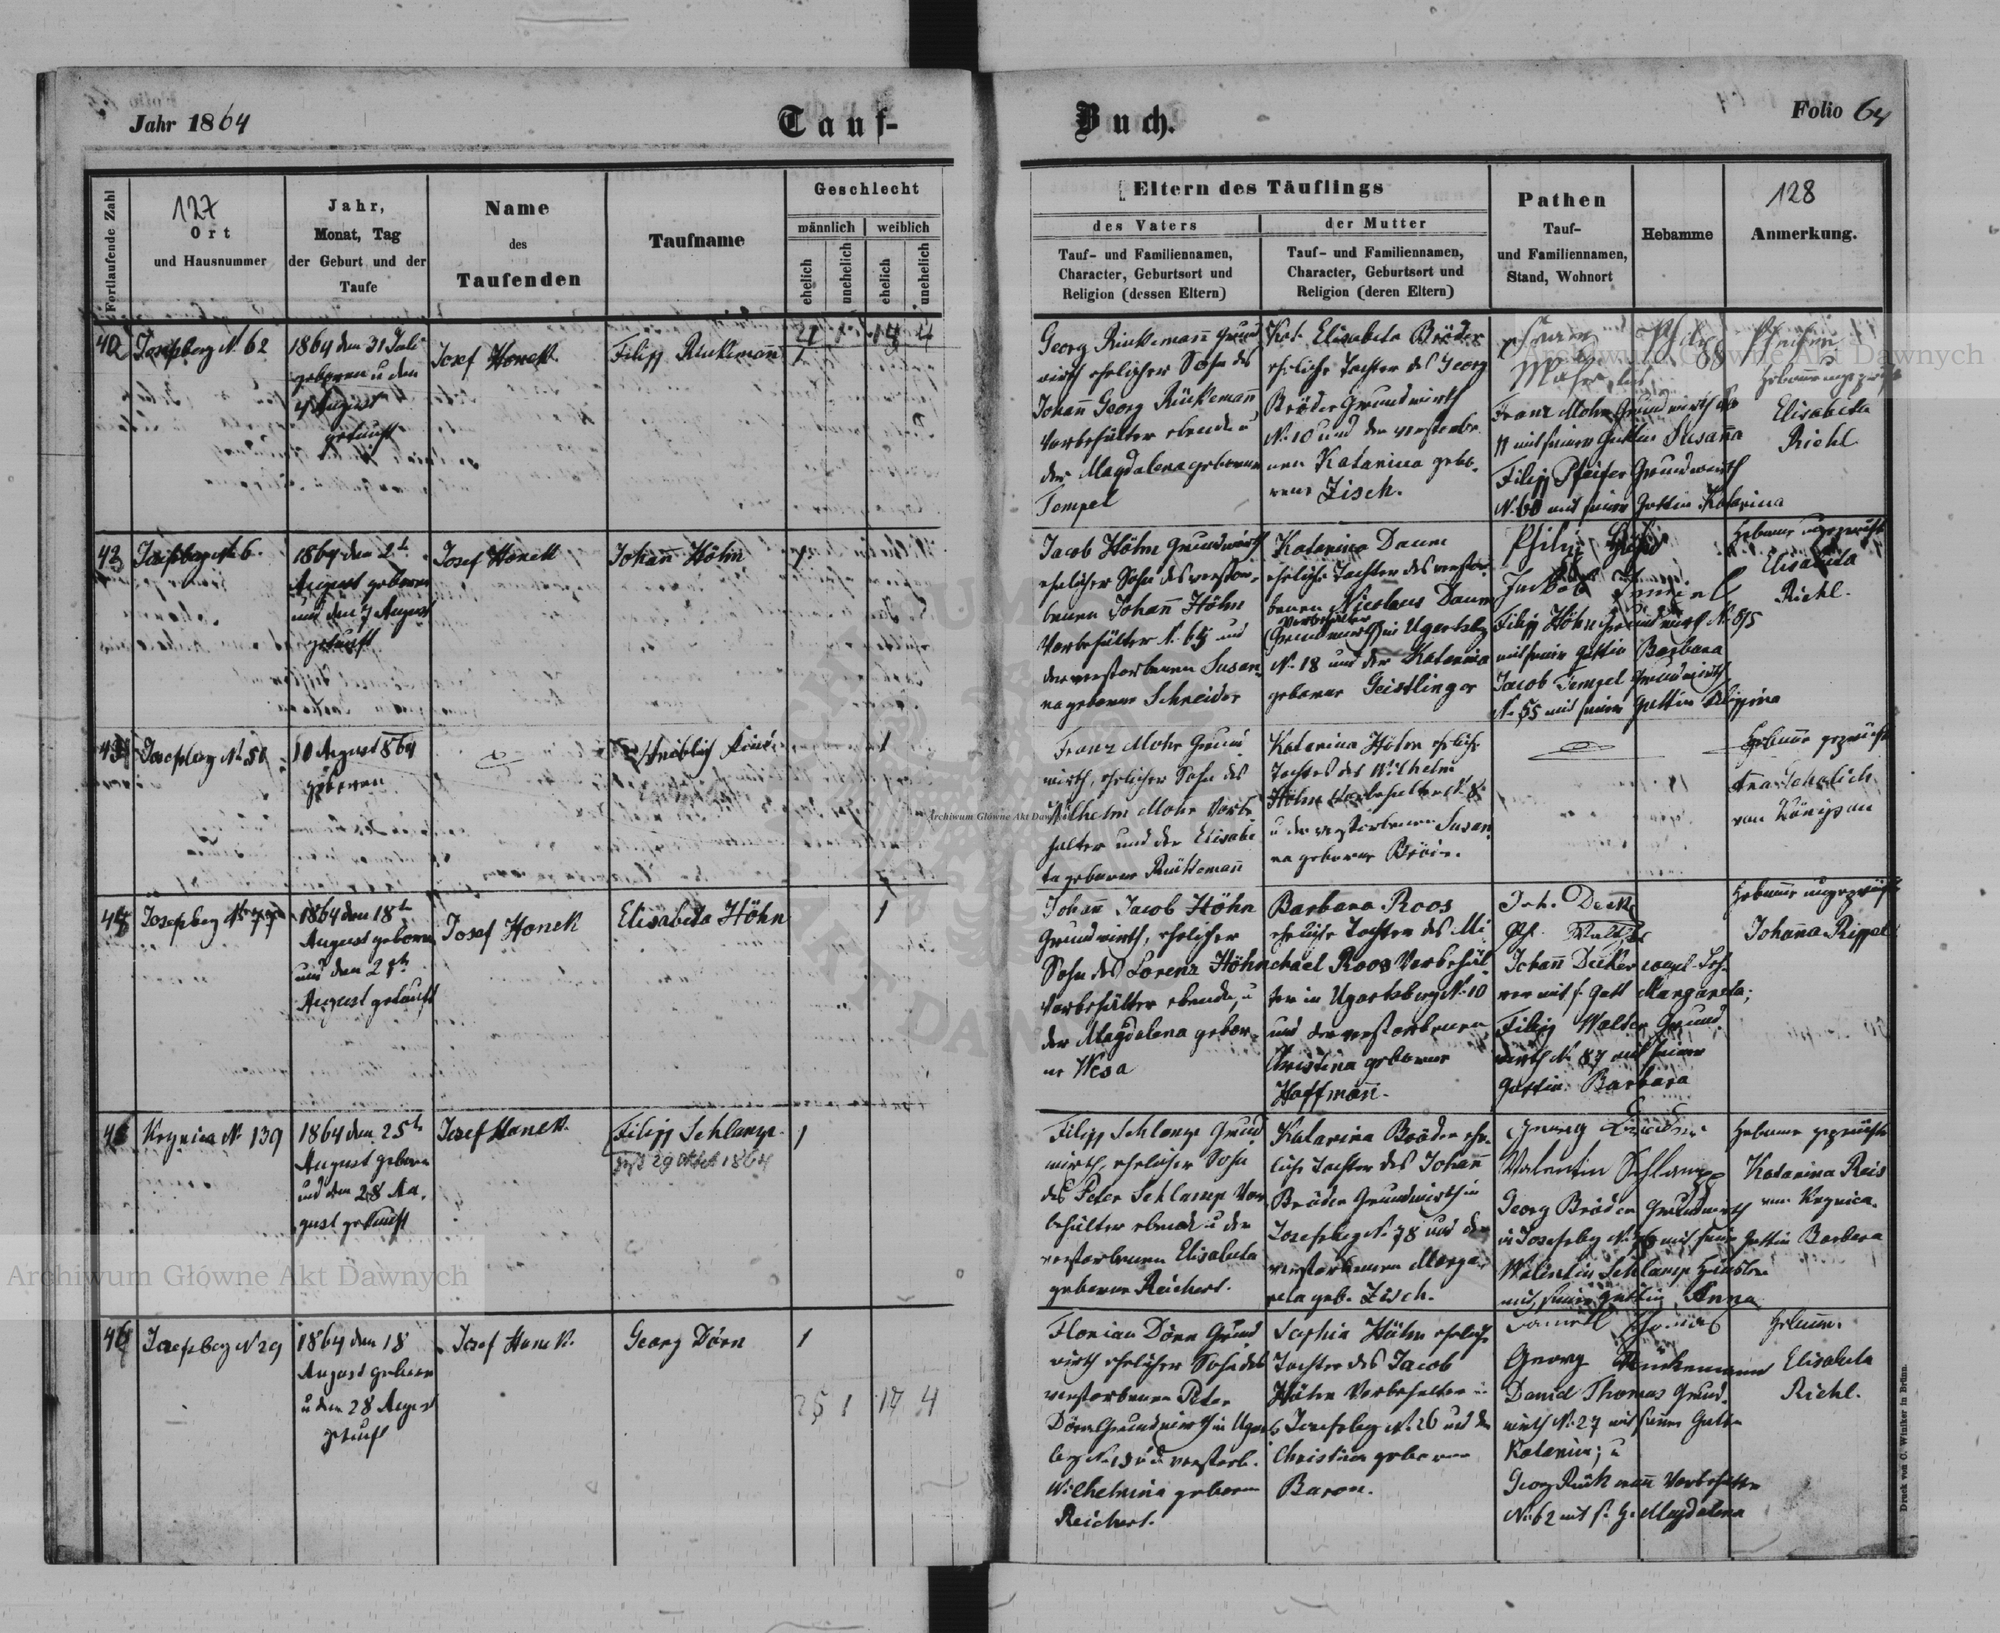 Jahr 1864
Tauf-
Fortlaufende Zahl
127
Ort
und Hausnummer
Jahr,
Monat, Tag
der Geburt und der
Taufe
Name
des
Taufenden
Taufname
Geschlecht
männlich
weiblich
ehelich
unehelich
ehelich
unehelich
4 1 14 4
42
Josefsberg N. 62
1864 den 31 Juli
geboren u den
4 August
getauft
Josef Honek
Filipp Rückemañ
1
43
Josefsberg N. 6
1864 den 2t
August geboren
und den 7 August
getauft
Josef Honek
Johañ Höhn
1
Josefsberg N. 50
10 August 864
geboren
Weiblich Kind
1
Josefsberg N. 77
1864 den 18t
August geboren
und den 28t
August getauft
Josef Honek
Elisabeta Höhn
1
Krynica N. 139
1864 den 25t
August geboren
und den 28 Au-
gust getauft
Josef Honek
Filipp Schlamp
1
Josefsberg N 29
1864 den 18
August geboren
u den 28 August
getauft
Josef Honek
Georg Dörn
1
25 1 14 4
Buch.
Folio 64
Eltern des Täuflings
des Vaters
der Mutter
Tauf- und Familiennamen,
Character, Geburtsort und
Religion (dessen Eltern)
Tauf- und Familiennamen,
Character, Geburtsort und
Religion (deren Eltern)
Pathen
Tauf-
und Familiennamen,
Stand, Wohnort
Hebamme
128
Anmerkung.
Georg Rückemañ Grund
wirth ehelicher Sohn des
Johañ Georg Rückemañ
Vorbehälter ebenda u
der Magdalena geborene
Tempel
Kat. Elisabeta Bröder
eheliche Tochter des Georg
Bröder Grundwirth
N. 10 und der verstorbe-
nen Katarina gebo-
rene Zisch.
Franz Mohr Grundwirth
mit seiner Gattin Susaña
Filipp Pfeifer Grundwirth
N. 60 mit seiner Gattin Katarina
Hebamme ungeprüft
Elisabeta
Riehl
Jacob Höhn Grundwirth
ehelicher Sohn des verstor-
benen Johañ Höhn
Vorbehälter N. 65 und
der verstorbenen Susan-
na geborene Schneider
Katarina Daum
eheliche Tochter des verstor-
benen Nicolaus Daum
Vorbehälter
Grundwirth in Ugartsberg
N. 18 und der Katarina
geborene Geistlinger
Philip Höhn
Jackob Tempel
Filipp Höhn Grundwirth N. 65
mit seiner Gattin Barbara
Jacob Tempel Grundwirth
N. 55 mit seiner Gattin Filippina
Hebamme ungeprüft
Elisabeta
Riehl.
Franz Mohr Grund
wirth, ehelicher Sohn des
Wilhelm Mohr Vorbe
halter und der Elisabe
ta geborene Rückemañ
Katarina Höhn eheliche
Tochter des Wilhelm
Höhn Vorbehalter N. 8
u der verstorbenen Susan
na geborene
Hebamme geprüft
Ana Scholich
von Königsau
Johañ Jacob Höhn
Grundwirth, ehelicher
Sohn des Lorenz Höhn
Vorbehälter ebenda, u
der Magdalena gebor-
ne Wesa
Barbara Roos
eheliche Tochter des Mi
chael Roos Vorbehäl-
ter in Ugartsberg N. 10
und der verstorbenen
Christina geborene
Hoffmañ.
Joh. Decker
Johañ Decker evgl. Leh-
rer mit s. Gatt Margareta;
Filipp Walter Grund
wirth N. 87 mit seiner
Gattin Barbara
Hebamme ungeprüft
Johaña Rippel
Filipp Schlamp Grund
wirth, ehelicher Sohn
des Peter Schlamp Vor
behälter ebenda u der
verstorbenen Elisabeta
geborene Reichert.
Katarina Bröder ehe-
liche Tochter des Johañ
Bröder Grundwirth in
Josefsberg N. 78 und der
verstorbenen Marga-
reta geb. Zisch.
Georg Bröder
Valentin Schlamp
Georg Bröder Grundwirth
in Josefsberg N. mit seiner Gattin Barbara
Walentin Schlamp
mit seiner Gattin Anna
Hebamme geprüft
Katarina Reis
von Krynica.
Florian Dörn Grund
wirth ehelicher Sohn des
verstorbenen Peter
Dörn Grundwirth in Ugarts
berg N. u d. verstorb.
Wilhelmina geborene
Reichert.
Sophia Höhn eheliche
Tochter des Jacob
Höhn Vorbehalter in
Josefsberg N. 26 und der
Christina geborene
Baron.
Daniel Thomas
Georg Rückemann
Daniel Thomas Grund-
wirth N. 27 mit seiner Gattin
Katarina; u
Georg Rückemañ Vorbehälter
N. 62 mit s. G. Magdalena
Hebamm.
Elisabeta
Riehl.
Druck von C. Winiker in Brünn.
Archiwum Główne Akt Dawnych
Archiwum Główne Akt Dawnych
Archiwum Główne Akt Dawnych